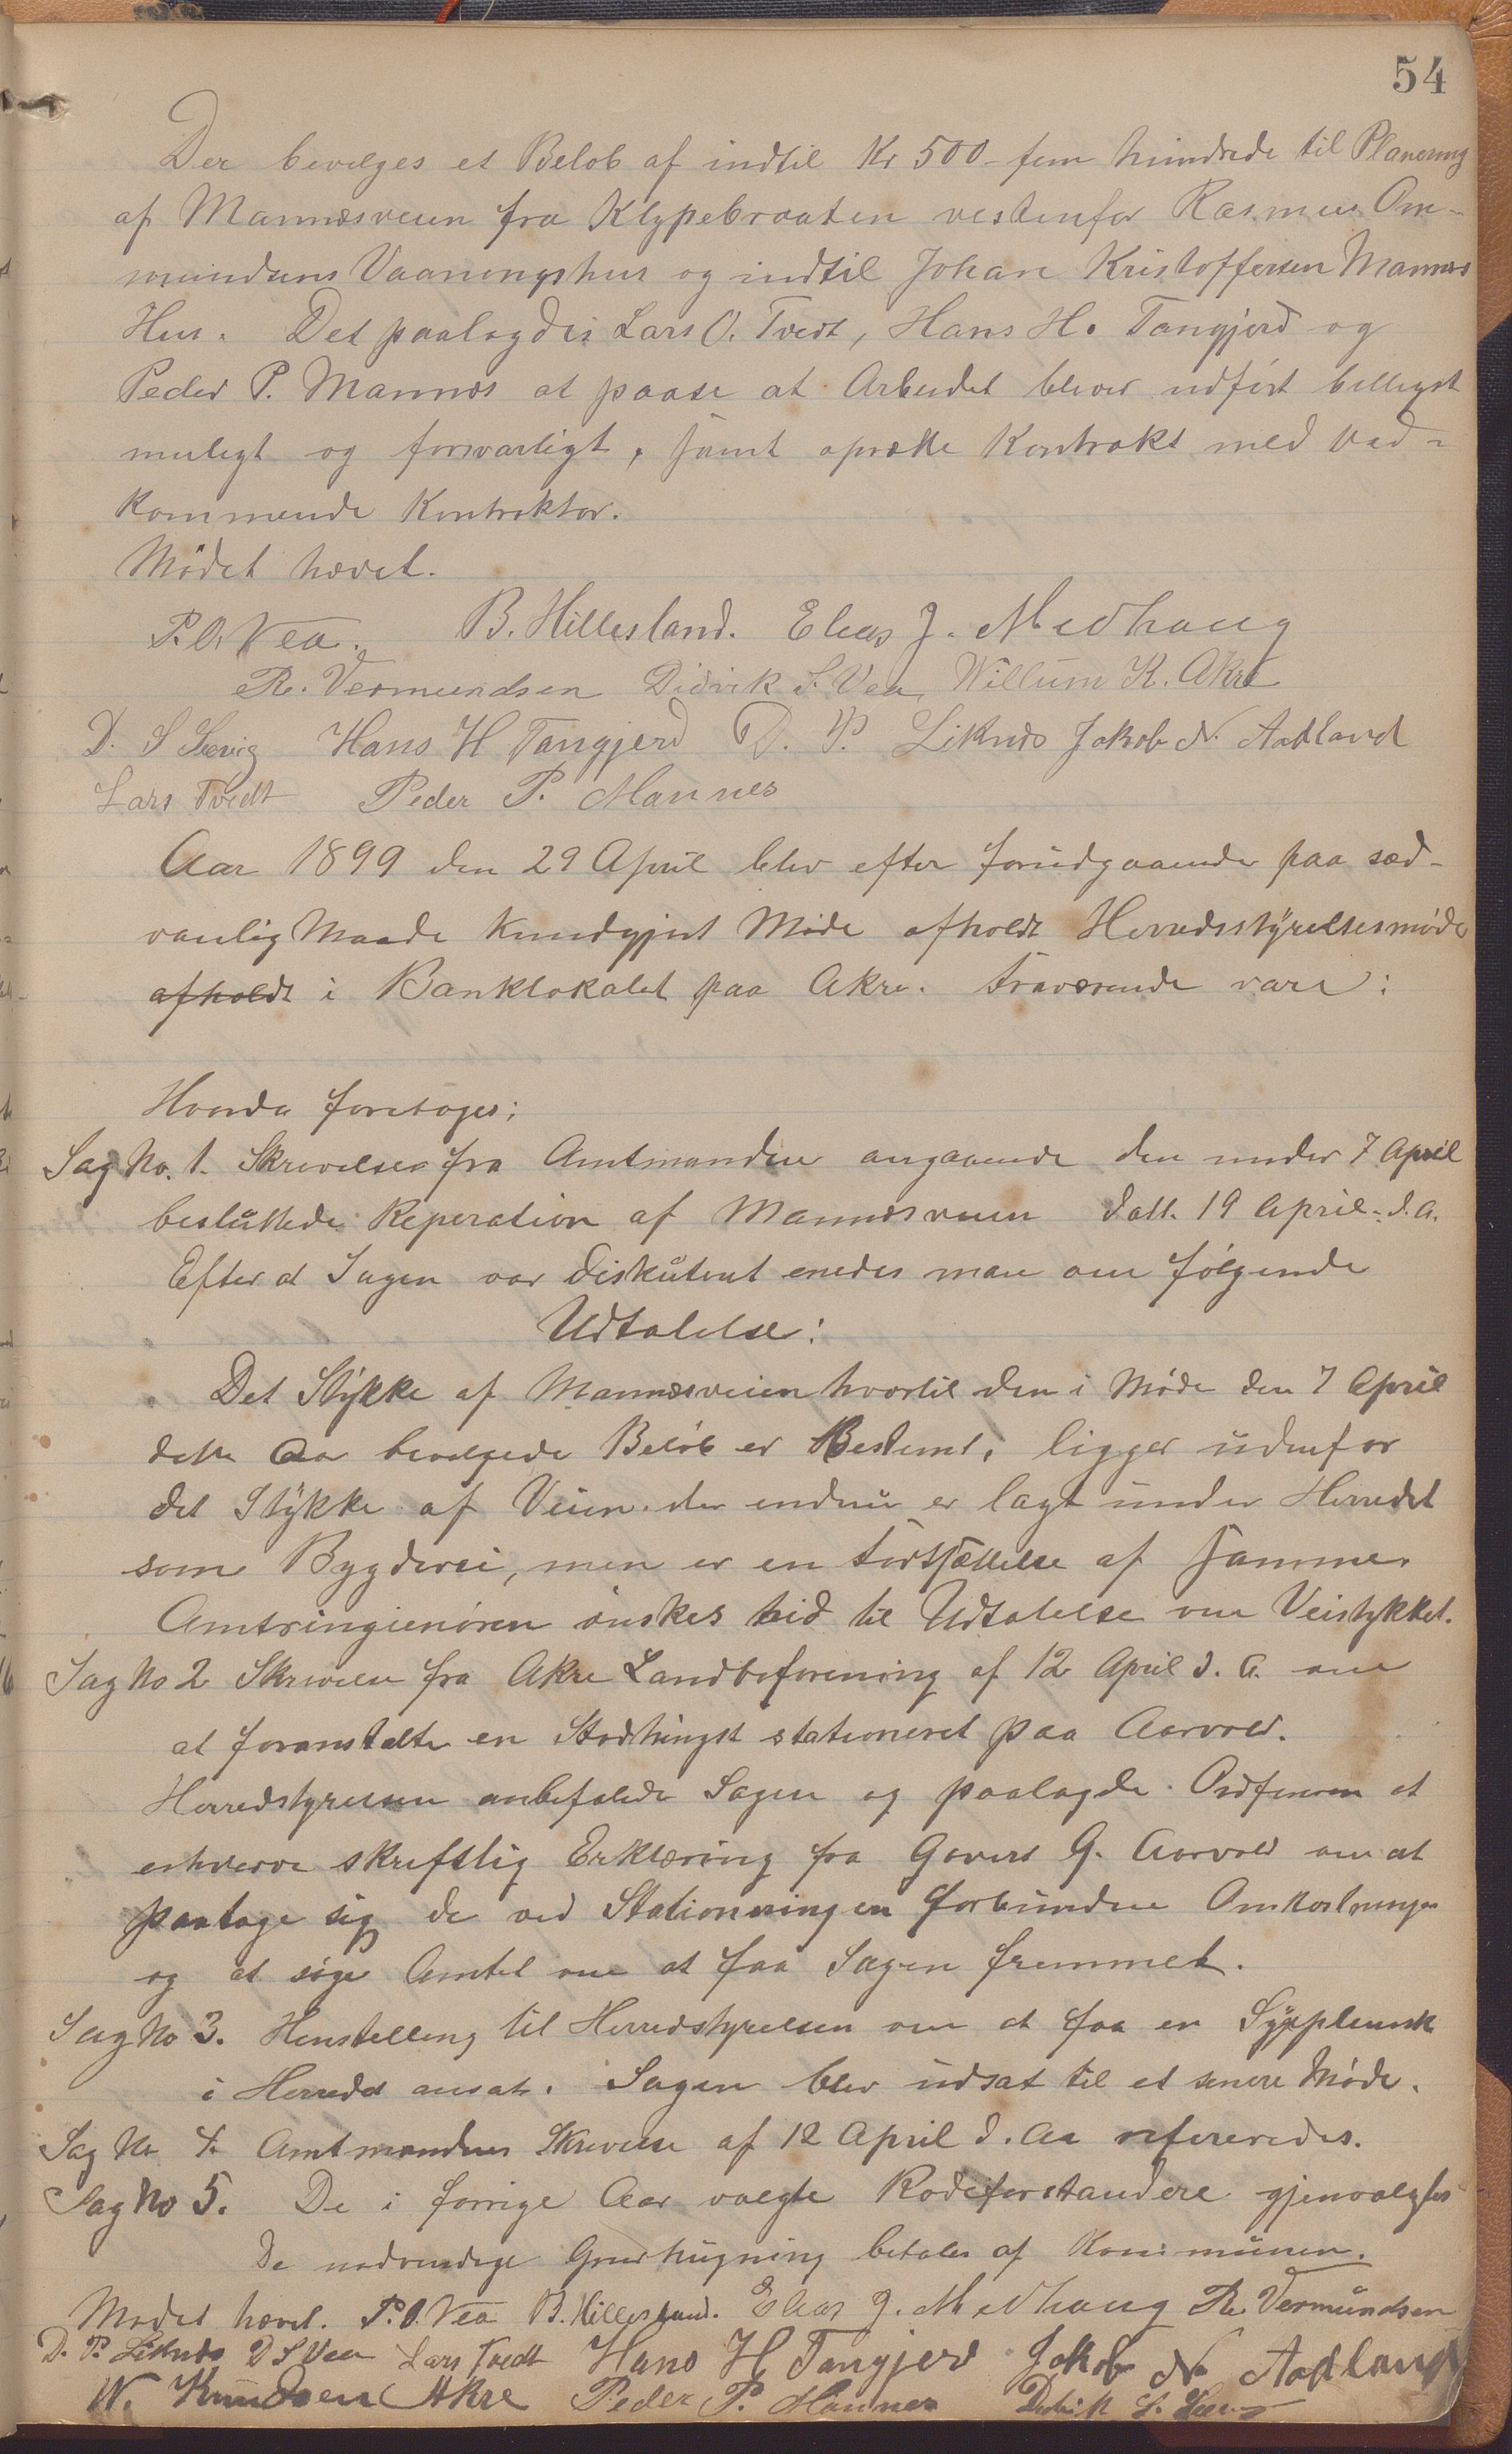 54
Der bevilges et Beløb af indtil Kr 500 - fem hundrede til Planering
af Mannæsveien fra Klypebraaten vestenfor Rasmus Om-
mundsens Vaaningshus og indtil Johan Kristoffersen Mannæs
Hus. Det paalagdes Lars O. Tvedt, Hans H. Tangjerd og
Peder P. Mannæs at paase at Arbeidet bliver udført billigst
muligt og forsvarligt, samt oprette Kontrakt med ved-
kommende Kontraktør.
Mödet hævet.
P. O. Vea. B. Hillesland. Elias J. Medhaug
R. Vermundsen Didrik S. Vea Willum K. Akre
D. S Sævig Hans H Tangjerd D. P. Liknæs Jakob N. Aadland
Lars Tvedt Peder P. Mannes
Aar 1899 den 29 April blev efter forudgaaende paa sæd-
vanlig Maade kundgjort Møde afholdt Herredsstyrelsesmøde
afholdt i Banklokalet paa Akre. Fraværende vare:
Hvorda foretoges:
Sag No. 1. Skrivelse fra Amtmanden angaaende den under 7 April
besluttede Reperation af Mannæsveien datt. 19 April d. A.
Efter at Sagen var diskuteret enedes man om følgende
Udtalelse:
Det Stykke af Mannæsveien hvortil den i Møde den 7 April
dette Aar bevilgede Beløb er Bestemt, ligger udenfor
det Stykke af Veien der endnu er lagt under Herredet
som Bygdevei, men er en Fortsættelse af samme.
Amtsingieniøren ønskes hid til Udtalelse om Veistykket.
Sag No 2 Skrivelse fra Akre Landboforening af 12 April d. A. om
at foranstalte en Stodhingst stationeret paa Aarvold.
Herredstyrelsen anbefalede Sagen og paalagde Ordføreren at
erhverve skriftlig Erklæring fra Govert G. Aarvold om at
paatage sig de ved Stationeringen forbundne Omkostninger
og at søge Amtet om at faa Sagen fremmet.
Sag No 3. Henstilling til Herredstyrelsen om at faa en Sygepleierske
i Herredet ansat. Sagen blev udsat til et senere Møde.
Sag No 4. Amtmandens Skrivelse af 12 April d. Aa refereredes.
Sag No 5. De i forrige Aar valgte Rodeforstandere gjenvalgtes
De nødvendige Grushugning betales af Kommunen.
Mødet hævet. P. O. Vea B. Hillesland. Elias J. Medhaug R. Vermundsen
D. P. Liknæs D S Vea Lars Tvedt Hans H Tangjerd Jakob N Aadland
W. Knudsen Akre Peder P. Mannes Didrik S.